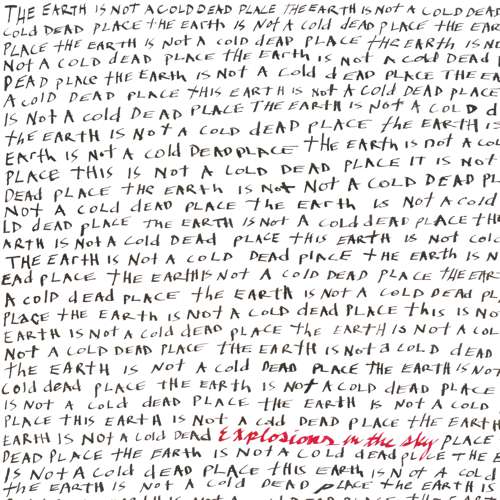 THE EARTH IS NOT A COLD DEAD PLACE THE EARTH IS NOT A COLD DEAD
COLD DEAD PLACE THE EARTH IS NOT A COLD DEAD PLACE THE EAR
PLACE THE EARTH IS NOT A COLD DEAD PLACE THE EARTH IS NO
NOT A COLD DEAD PLACE THE EARTH IS NOT A COLD DEAD
DEAD PLACE THE EARTH IS NOT A COLD DEAD PLACE THE EA
A COLD DEAD PLACE THIS EARTH IS NOT A COLD DEAD PLACE
IS NOT A COLD DEAD PLACE THE EARTH IS NOT A COLD D
THE EARTH IS NOT A COLD DEAD PLACE THE EARTH IS
EARTH IS NOT A COLD DEAD PLACE THE EARTH IS NOT A COL
PLACE THIS IS NOT A COLD DEAD PLACE IT IS NOT
DEAD PLACE THE EARTH IS NOT NOT A COLD DEAD PL
NOT A COLD DEAD PLACE THE EARTH IS NOT A COLD
LD DEAD PLACE THE EARTH IS NOT A COLD DEAD PLACE THE
ARTH IS NOT A COLD DEAD PLACE THIS EARTH IS NOT COL
THE EARTH IS NOT A COLD DEAD PLACE THE EARTH IS N
EAD PLACE THE EARTH IS NOT A COLD DEAD PLACE THE EAR
A COLD DEAD PLACE THE EARTH IS NOT A COLD DEAD PL
PLACE THE EARTH IS NOT A COLD DEAD PLACE THIS IS NO
EARTH IS NOT A COLD DEAD PLACE THE EARTH IS NOT A COL
NOT A COLD DEAD PLACE THE EARTH IS NOT A COLD DEAD
THE EARTH IS NOT A COLD DEAD PLACE THE EARTH IS NOT
COLD DEAD PLACE THE EARTH IS NOT A COLD DEAD PLACE
IS NOT A COLD DEAD PLACE THE EARTH IS NOT A COLD
PLACE THIS EARTH IS NOT A COLD DEAD PLACE THE EARTH
EARTH IS NOT A COLD DEAD Explosions in the sky PLACE
DEAD PLACE THE EARTH IS NOT A COLD DEAD PLACE THE EA
IS NOT A COLD DEAD PLACE THIS EARTH IS NOT A COLD
THE EARTH IS NOT A COLD DEAD PLACE THE EARTH IS